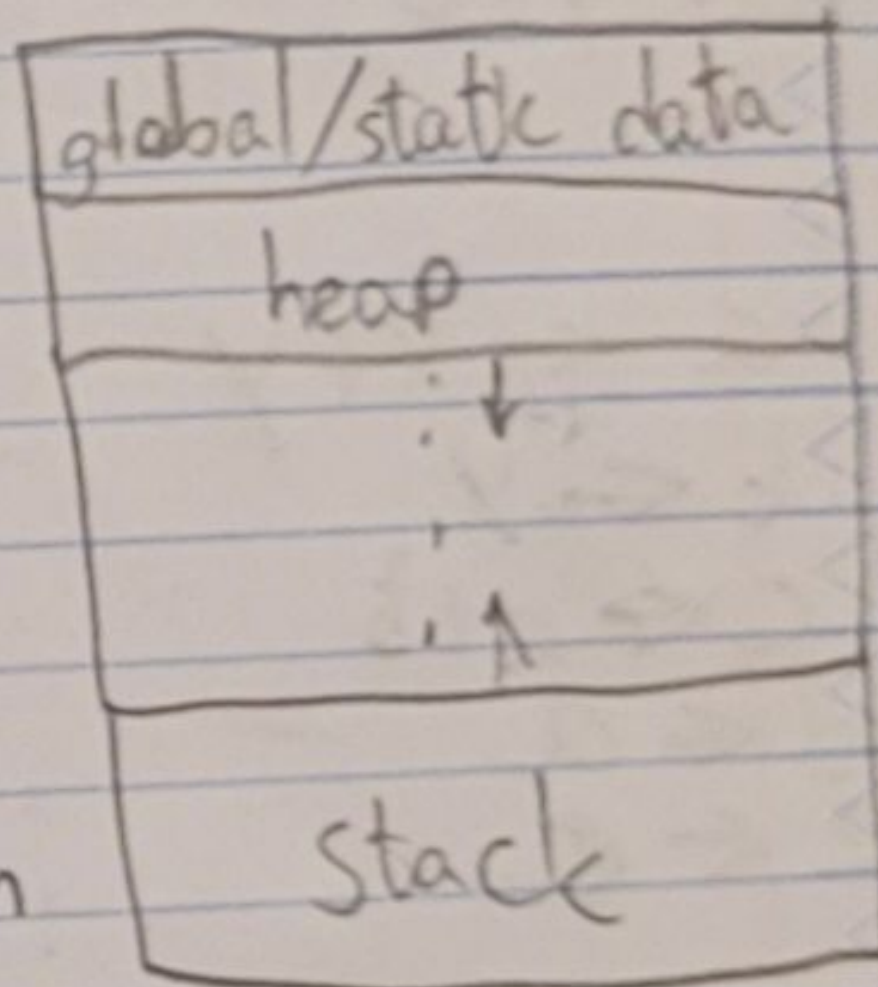 global/static data
heap
stack
n